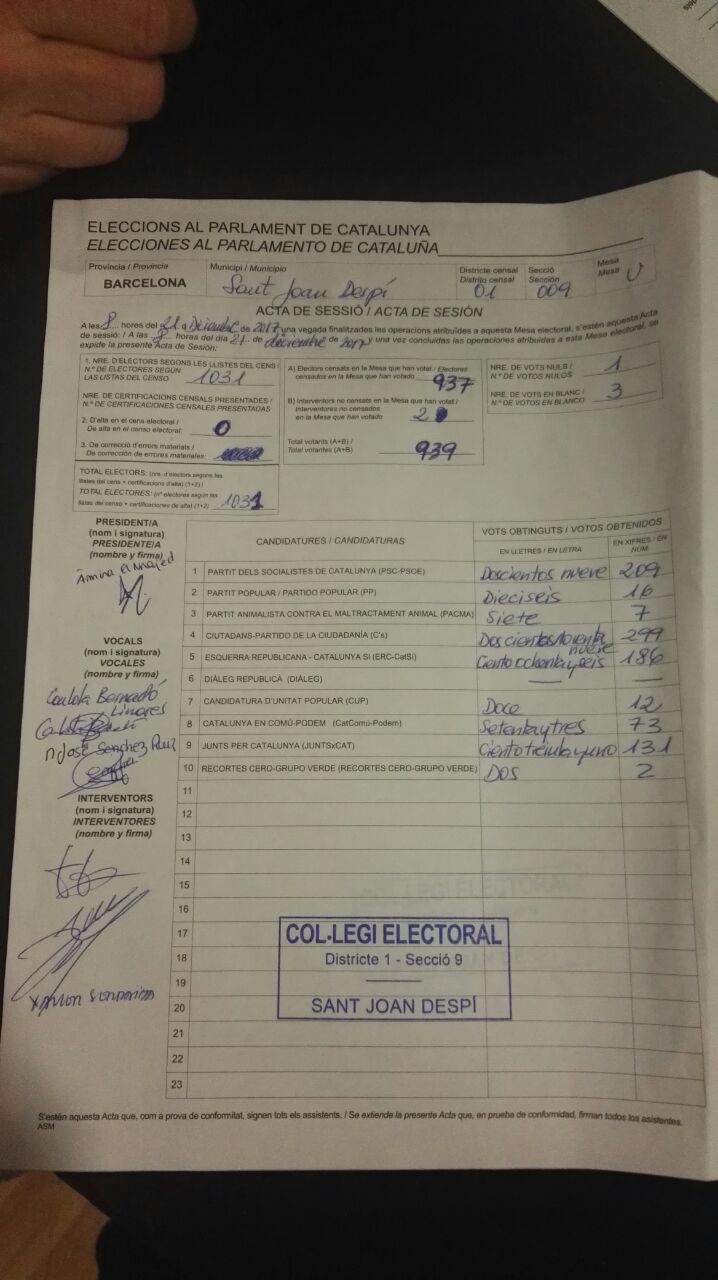 ELECCIONS AL PARLAMENT DE CATALUNYA
ELECCIONES AL PARLAMENTO DE CATALUÑA
Província / Provincia
BARCELONA
Municipi / Municipio
Sant Joan Despí
Districte censal
Distrito censal
01
Secció
Sección
009
Mesa
Mesa
U
ACTA DE SESSIÓ / ACTA DE SESIÓN
A les 8 hores del 21 d Diciembre de 2017 una vegada finalitzades les operacions atribuïdes a aquesta Mesa electoral, s'estén aquesta Acta
de sessió: / A las 8 horas del día 21 de diciembre de 2017 y una vez concluidas las operaciones atribuidas a esta Mesa electoral, se
expide la presente Acta de Sesión:
1. NRE. D'ELECTORS SEGONS LES LLISTES DEL CENS /
N.º DE ELECTORES SEGÚN
LAS LISTAS DEL CENSO 1031
NRE. DE CERTIFICACIONS CENSALS PRESENTADES /
N.º DE CERTIFICACIONES CENSALES PRESENTADAS
2. D'alta en el cens electoral /
De alta en el censo electoral: 0
3. De correcció d'errors materials /
De corrección de errores materiales:
TOTAL ELECTORS: (nre. d'electors segons les
llistes del cens + certificacions d'alta) (1+2) /
TOTAL ELECTORES: (nº electores según las
listas del censo + certificaciones de alta) (1+2) 1031
A) Electors censats en la Mesa que han votat / Electores
censados en la Mesa que han votado 937
B) Interventors no censats en la Mesa que han votat /
Interventores no censados
en la Mesa que han votado 2
Total votants (A+B) /
Total votantes (A+B) 939
NRE. DE VOTS NULS /
N.º DE VOTOS NULOS 1
NRE. DE VOTS EN BLANC /
N.º DE VOTOS EN BLANCO 3
PRESIDENT/A
(nom i signatura)
PRESIDENTE/A
(nombre y firma)
VOCALS
(nom i signatura)
VOCALES
(nombre y firma)
Linares
Mª José Sánchez Ruiz
INTERVENTORS
(nom i signatura)
INTERVENTORES
(nombre y firma)
CANDIDATURES / CANDIDATURAS
VOTS OBTINGUTS / VOTOS OBTENIDOS
EN LLETRES / EN LETRA
EN XIFRES / EN NÚM.
1 PARTIT DELS SOCIALISTES DE CATALUNYA (PSC-PSOE) Doscientos nueve 209
2 PARTIT POPULAR / PARTIDO POPULAR (PP) Dieciseis 16
3 PARTIT ANIMALISTA CONTRA EL MALTRACTAMENT ANIMAL (PACMA) Siete 7
4 CIUTADANS-PARTIDO DE LA CIUDADANÍA (C's) Doscientos noventa nueve 299
5 ESQUERRA REPUBLICANA - CATALUNYA SÍ (ERC-CatSí) Ciento ochenta y seis 186
6 DIÀLEG REPUBLICÀ (DIÀLEG) — —
7 CANDIDATURA D'UNITAT POPULAR (CUP) Doce 12
8 CATALUNYA EN COMÚ-PODEM (CatComú-Podem) Setenta y tres 73
9 JUNTS PER CATALUNYA (JUNTSxCAT) Ciento treinta y uno 131
10 RECORTES CERO-GRUPO VERDE (RECORTES CERO-GRUPO VERDE) Dos 2
11
12
13
14
15
16
17
18
19
20
21
22
23
COL·LEGI ELECTORAL
Districte 1 - Secció 9
SANT JOAN DESPÍ
S'estén aquesta Acta que, com a prova de conformitat, signen tots els assistents. / Se extiende la presente Acta que, en prueba de conformidad, firman todos los asistentes.
ASM